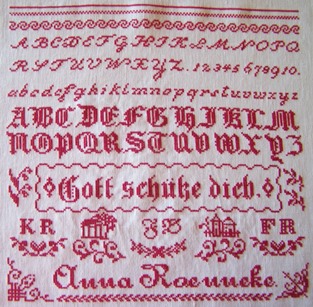 ABCDEFGHIKLMNOPQ
RSTUVWXYZ. 1234567890.
abcdefghiklmnopqrstuvwxyz
ABCDEFGHIKLM
NOPQRSTUVWXYZ
Gott schütze dich.
KR JB FR
Anna Roenneke.